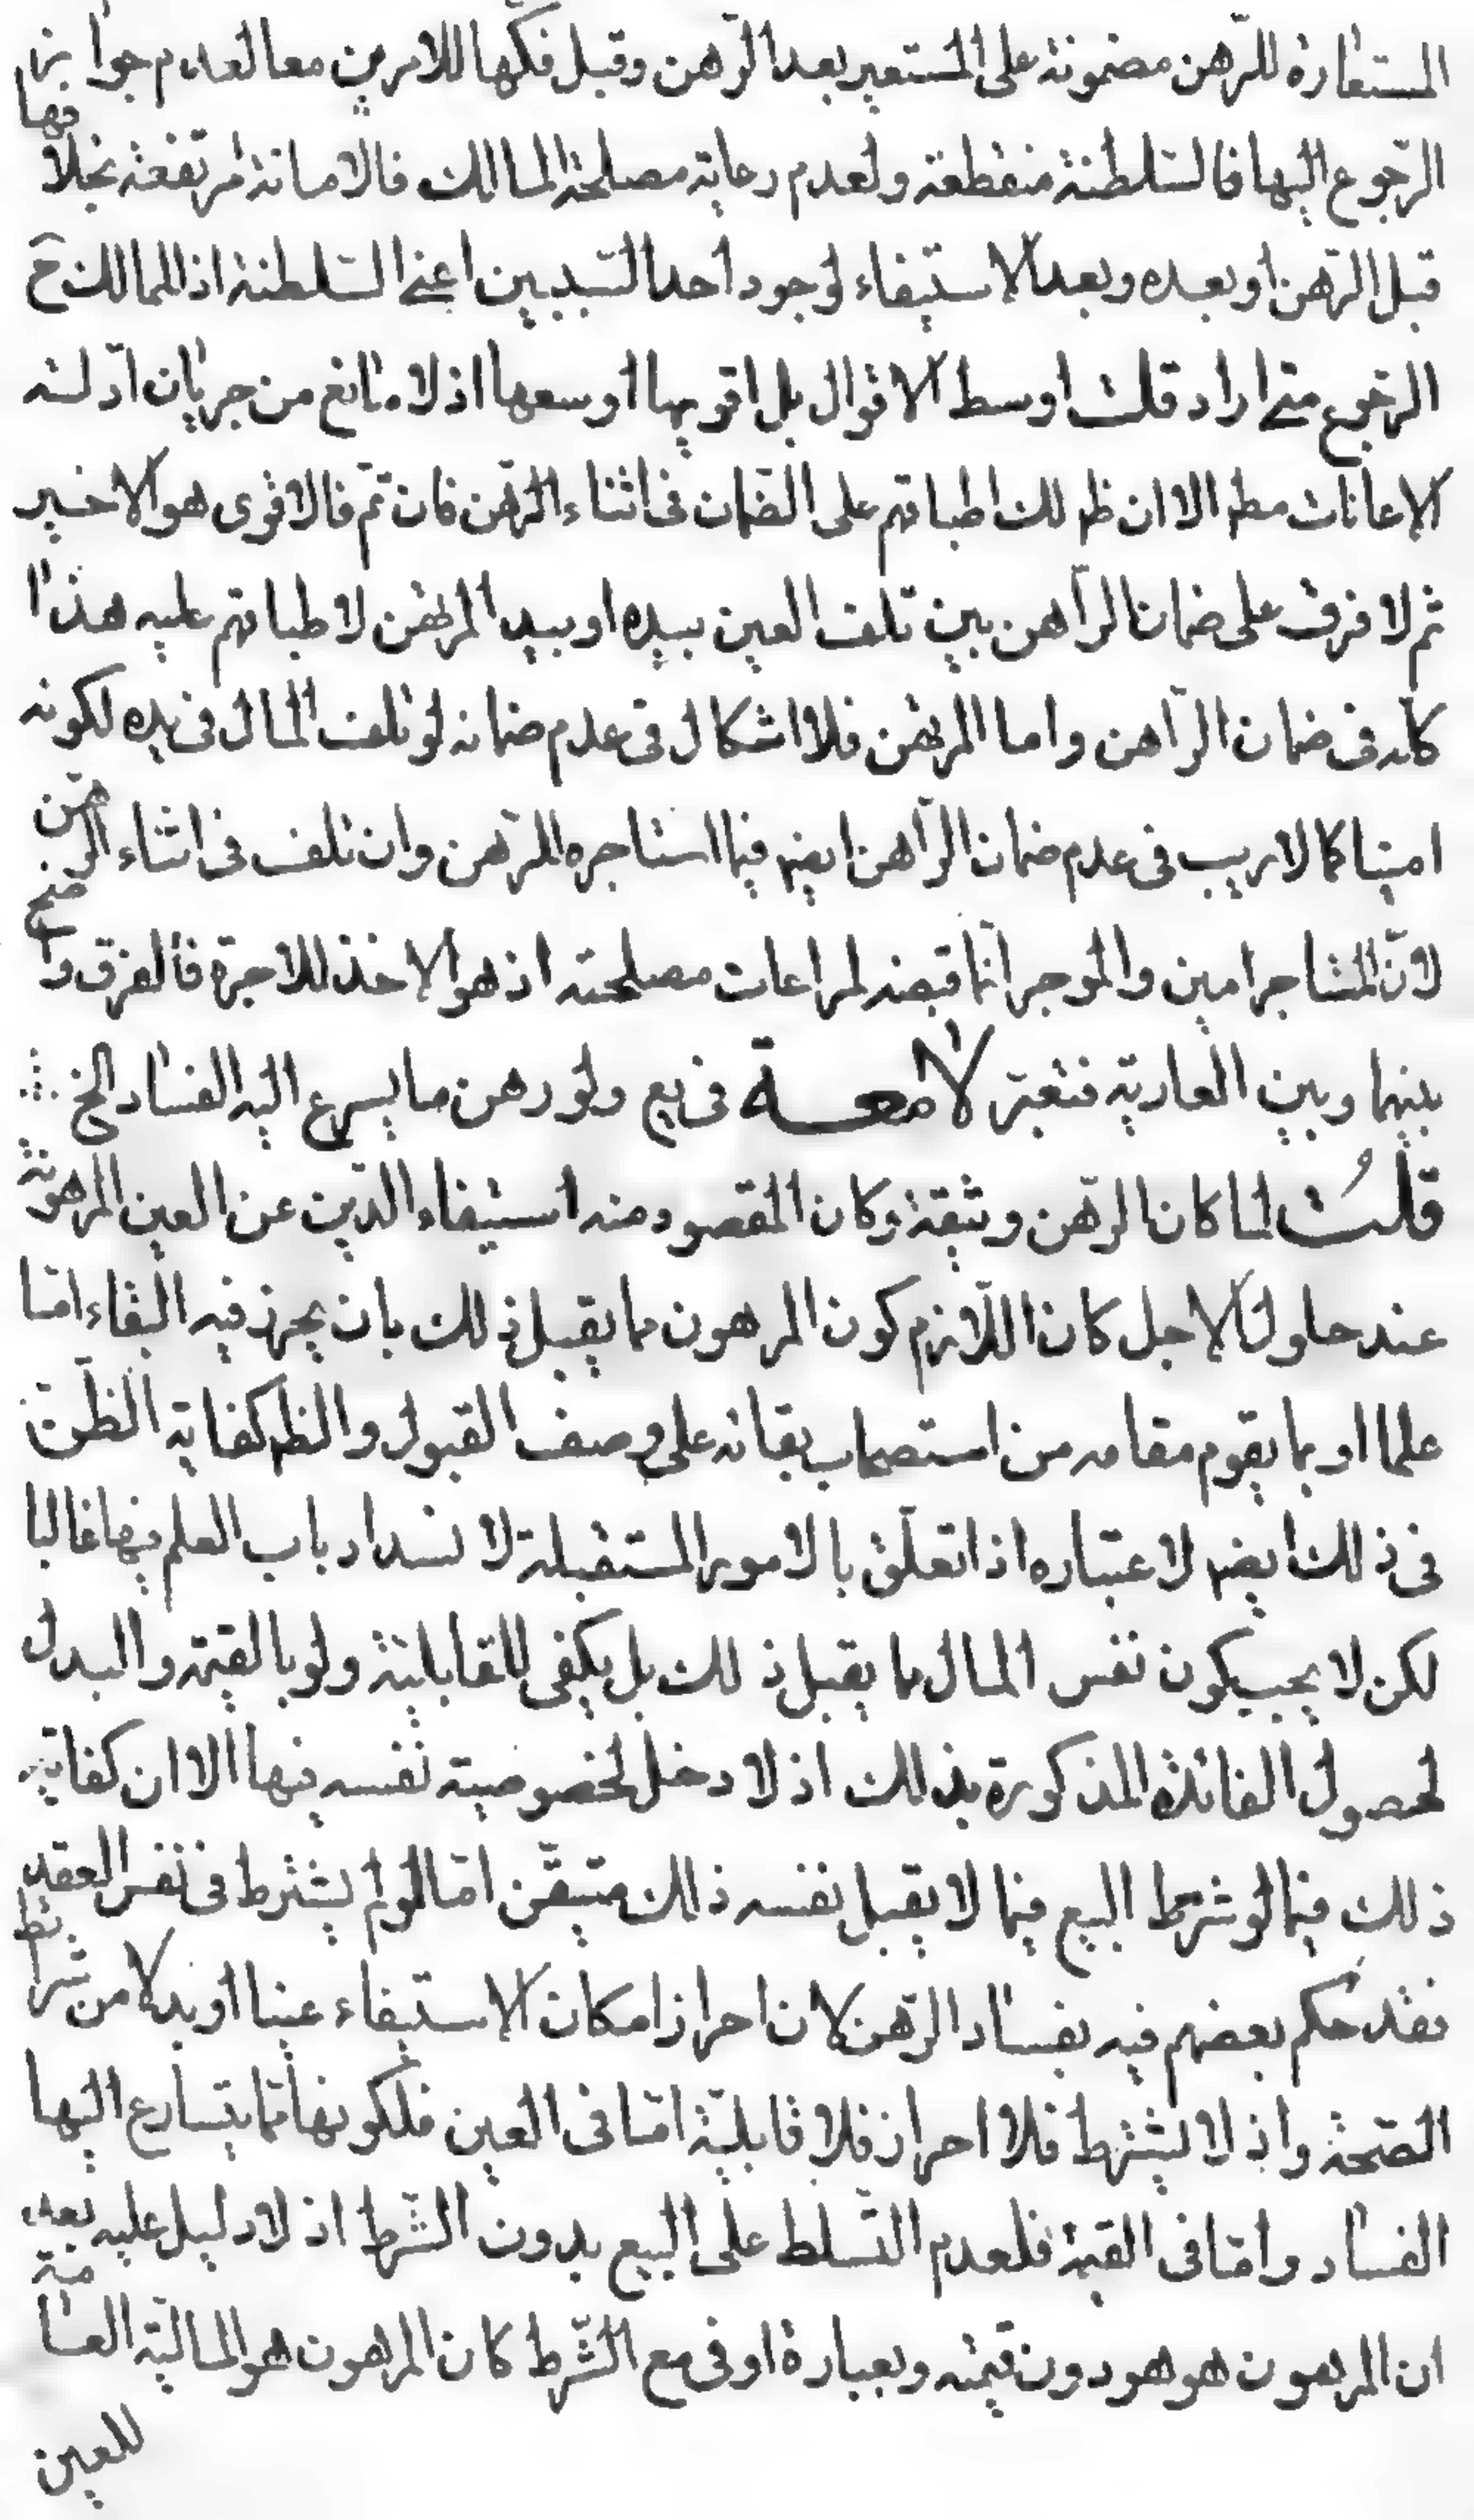 المستعارة للرّهن مضمونة على المستعير بعد الرّهن وقبل فكّها للامرين معا لعدم جواز
الرّجوع اليها فالسّلطنة منقطعة ولعدم رعاية مصلحة المالك فالامانة مرتفعة بخلا فها
قبل الرّهن او بعده وبعد الاستيفاء لوجود احد السّببين اعنى السّلطنة اذ للمالك ح
الرّجوع متى اراد قلت اوسط الاقوال بل اقويها اوسعها اذ لا مانع من جريان ادّلته
الاعانات مطم الا ان ظهر لك اطباقهم على الضّمان فى اثناء الرّهن فان تمّ فالاقوى هو الاخير
ثم لا فرق على ضمان الرّاهن بين تلف العين بيده او بيد المرتهن لاطباقهم عليه هذا
كلّه فى ضمان الرّاهن واما المرتهن فلا اشكال فى عدم ضمانه لو تلف المال فى يده لكونه
امينا كما لا ريب فى عدم ضمان الرّاهن ايضم فيما استاجره للرّهن وان تلف فى اثناء الرّهن
لانّ المستاجر امين والموجر انّما قبضه لمراعات مصلحته اذ هو الاخذ للاجرة فالفرق واضح
بينهما وبين العارية فتغبّر لامعة فى يع ولو رهن ما يسرع اليه الفساد الخ
قلتُ لما كان الرّهن وثيقة وكان المقصود منه استيفاء الدّين عن العين المرهونة
عند حلول الاجل كان اللّازم كون المرهون مما يقبل ذلك بان يحرز فيه البقاء امّا
علما او بما يقوم مقامه من استصحاب بقائه على وصف القبول والظم كفاية الظّنّ
فى ذلك ايضم لاعتباره اذا تعلّق بالامور المستقبلة لانسداد باب العلم فيها غالبا
لكن لا يجب كون نفس المال مما يقبل ذلك بل يكفى القابليّة ولو بالقيمة والبدل
لحصول الفائدة المذكورة بذلك اذ لا دخل لخصوصيّة نفسه فيها الا ان كفاية
ذلك فيما لو شرط البيع فيما لا يقبل نفسه ذلك متيقّن امّا لو لم يشترط فى نفس العقد
فقد حكم بعضهم فيه بفساد الرّهن لان احراز امكان الاستيفاء عينا او بدلا من شرائط
الصّحة واذ لا يشترط فلا احراز فلا قابليّة امّا فى العين فلكونها ممّا يتسارع اليها
الفساد وامّا فى القيمة فلعدم التّسلط على البيع بدون الشّرط اذ لا دليل عليه بعد
ان المرهون هو هو دون قيمته وبعبارة اوفى مع الشّرط كان المرهون هو الماليّة العامّة
للعين